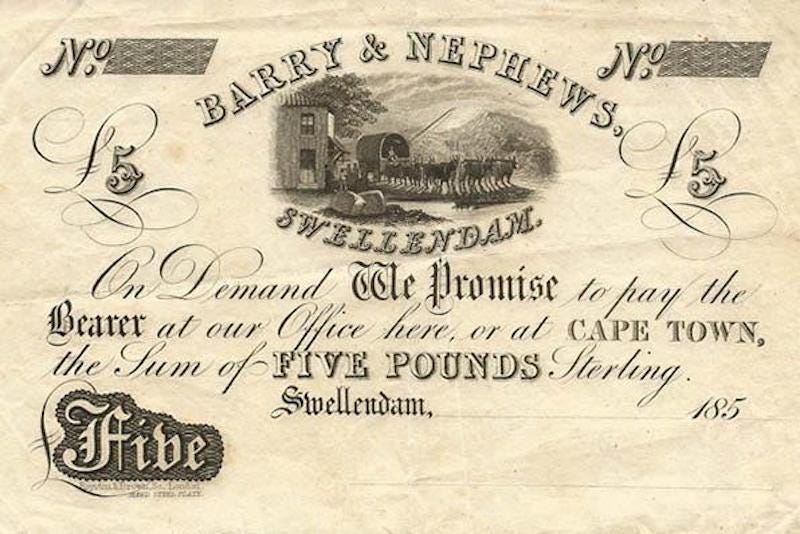 No. No.
BARRY & NEPHEWS,
£5 £5
SWELLENDAM.
On Demand We Promise to pay the
Bearer at our Office here, or at CAPE TOWN,
the Sum of FIVE POUNDS Sterling.
Swellendam, 185
£Five
London
HARD STEEL PLATE.